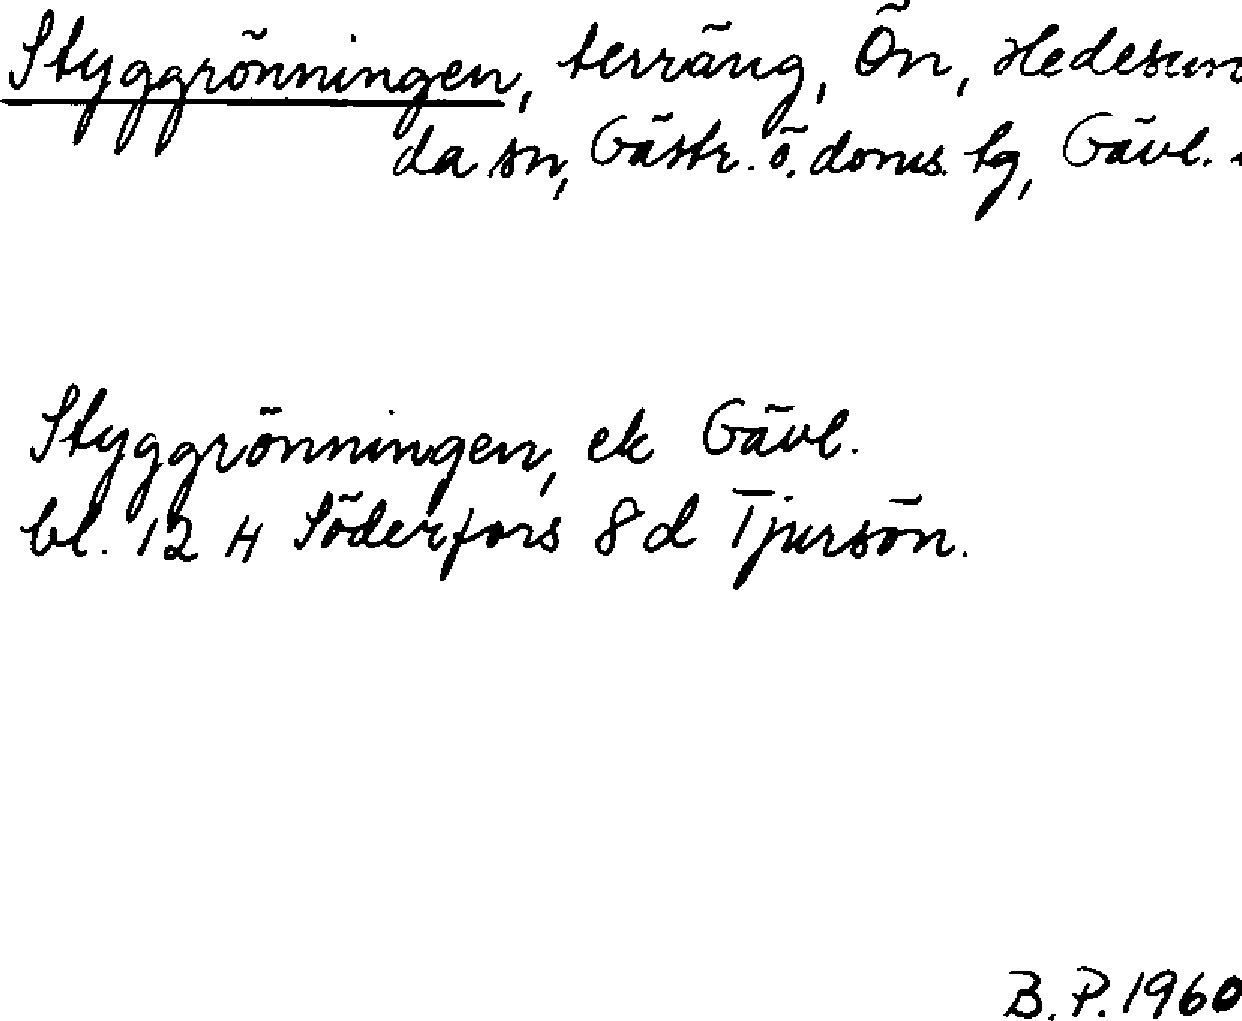 Styggrönningen, terräng, Ön, Hedesun
da sn, Gästr. ö. doms. tg, Gävl.
Styggrönningen, ek Gävl.
bl. 12 H Söderfors 8 d Tjursön.
B. P. 1960